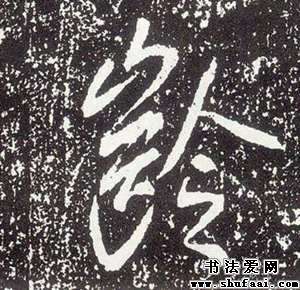 齡
书法爱网
www.shufaai.com